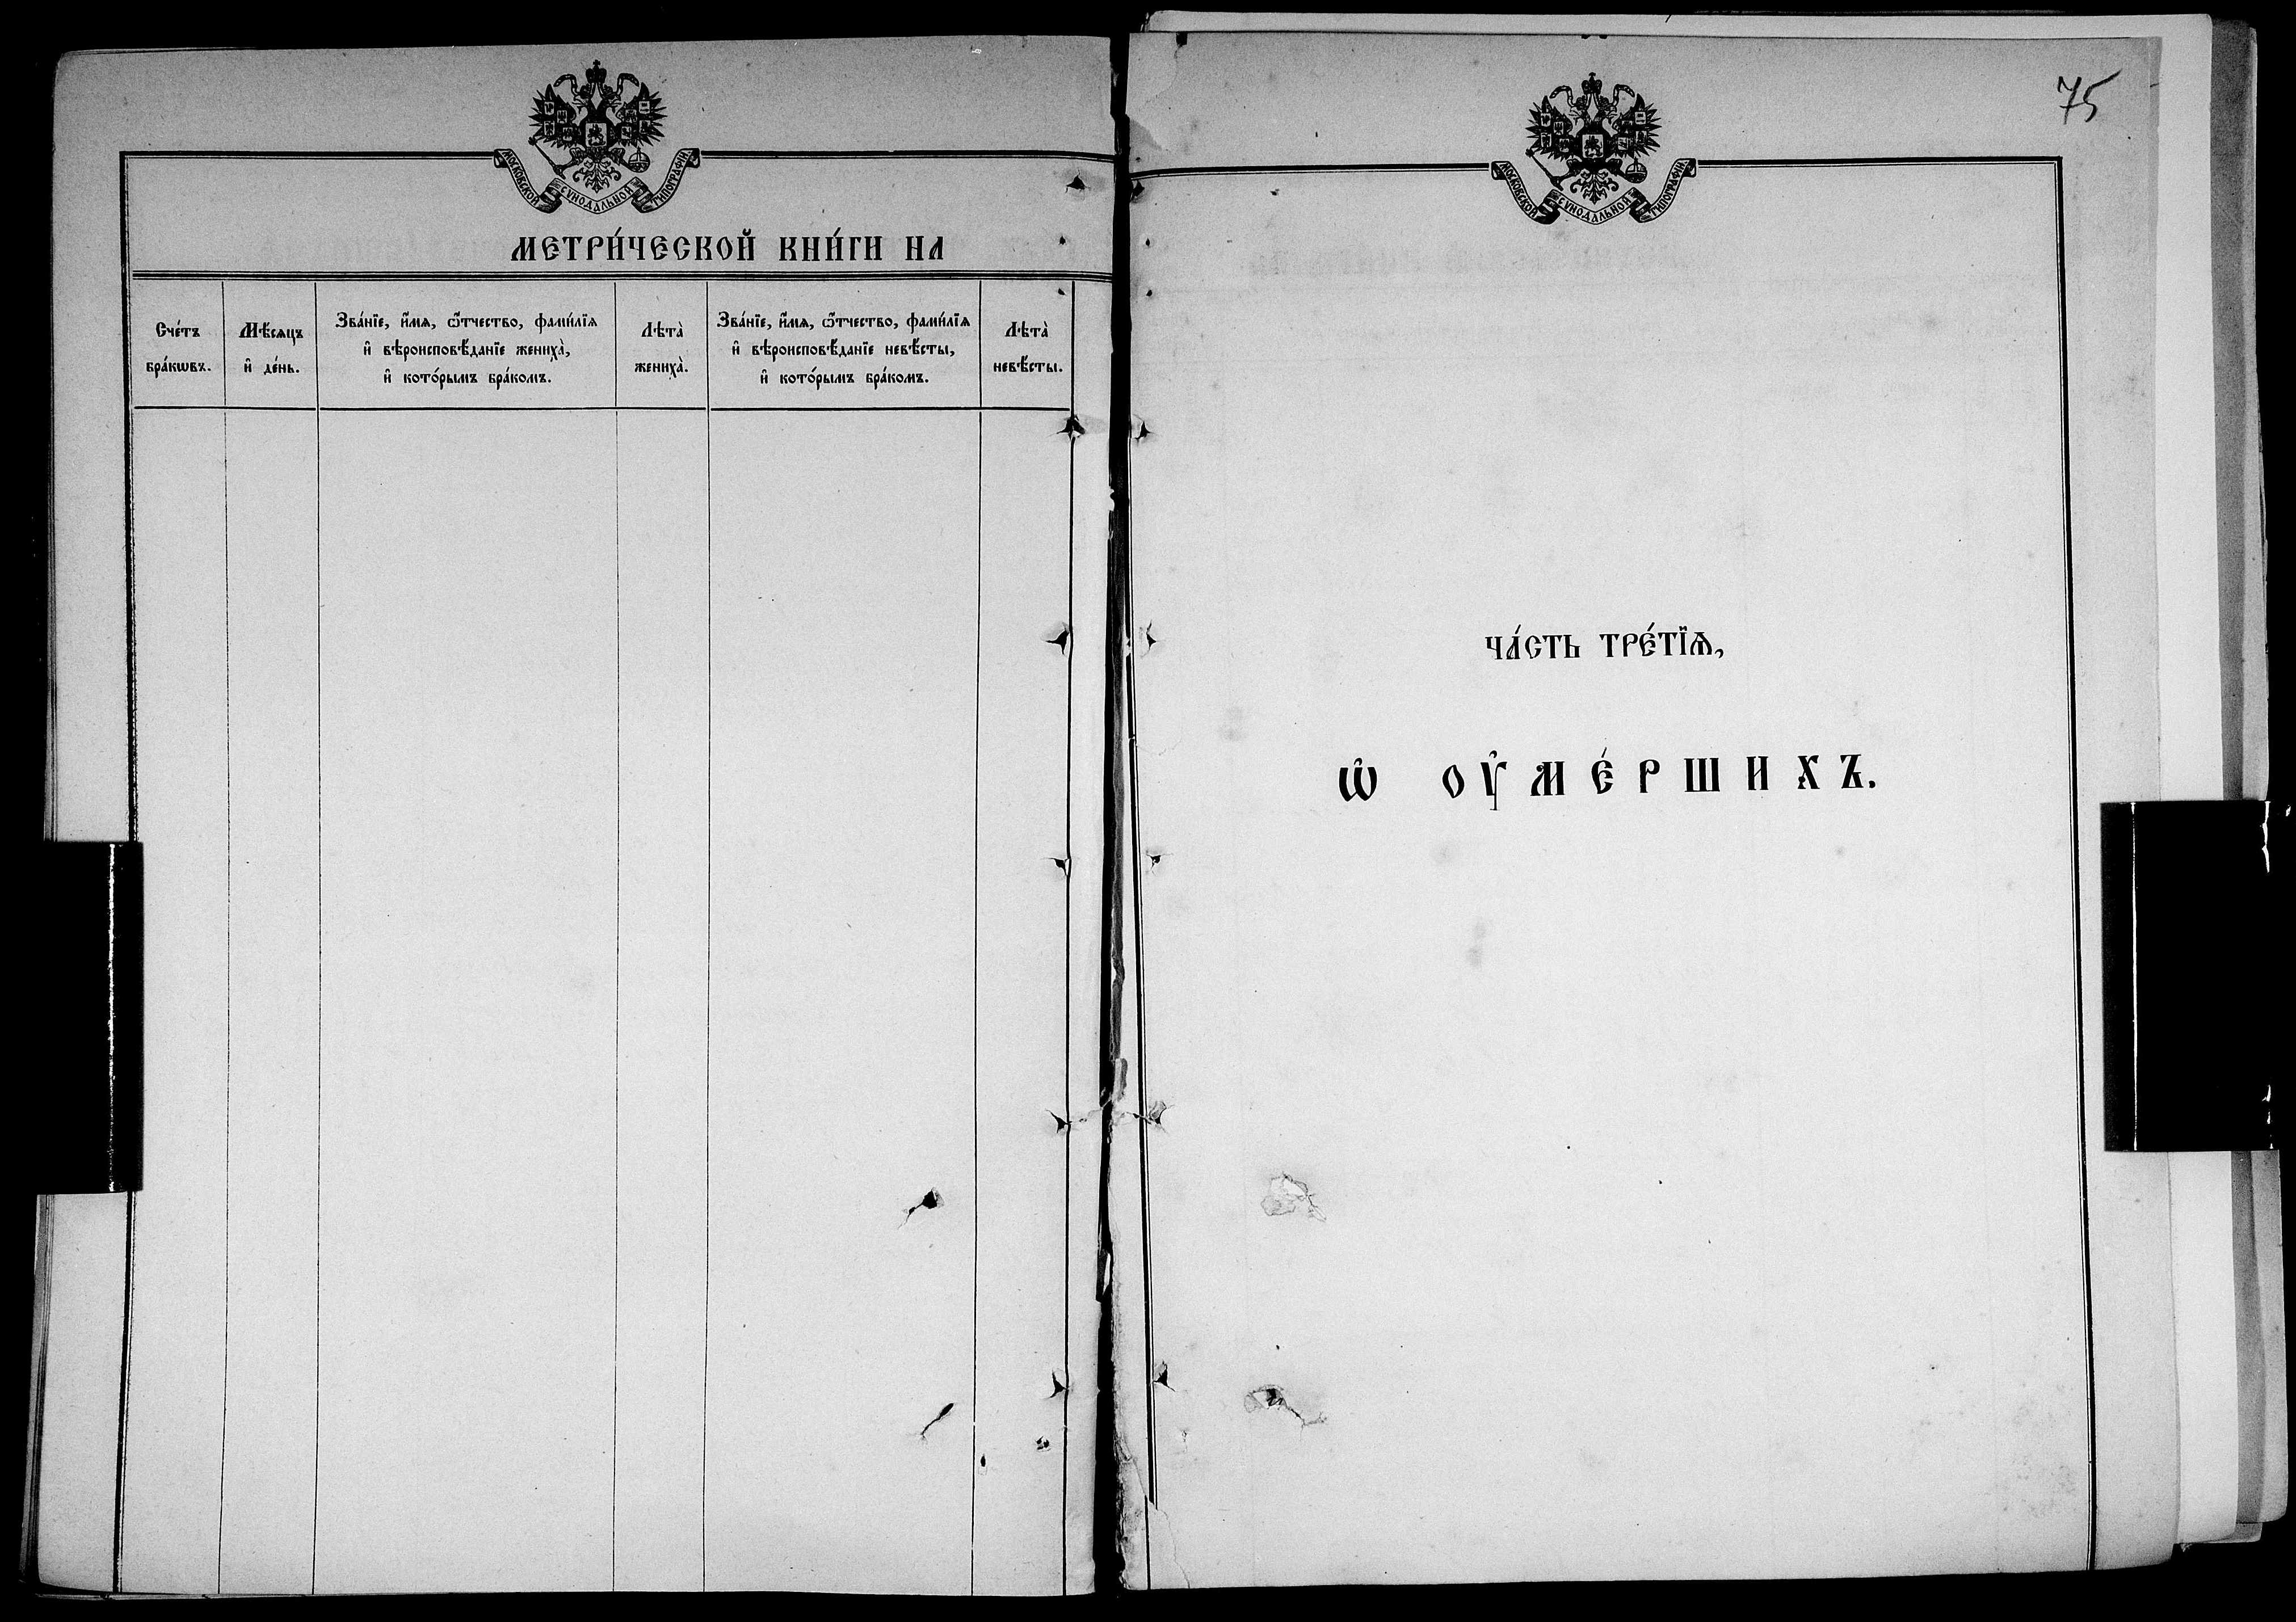 МОСКОВСКОЙ СУНОДАЛЬНОЙ ТИПОГРАФІИ
МЕТРИ́ЧЕСКОЙ КНИ́ГИ НА
Сче́тъ бра́кѡвъ.
Мѣ́сяцъ и҆ де́нь.
Зва́нїе, и҆́мя, ѻ҆́тчество, фами́лїя
и҆ вѣроисповѣ́данїе жениха̀,
и҆ кото́рымъ бра́комъ.
Лѣта̀ жениха̀.
Зва́нїе, и҆́мя, ѻ҆́тчество, фами́лїя
и҆ вѣроисповѣ́данїе невѣ́сты,
и҆ кото́рымъ бра́комъ.
Лѣта̀ невѣ́сты.
75
МОСКОВСКОЙ СУНОДАЛЬНОЙ ТИПОГРАФІИ
ЧА́СТЬ ТРЕ́ТЇѦ,
Ѡ҆ ОУ҆МЕ́РШИХЪ.